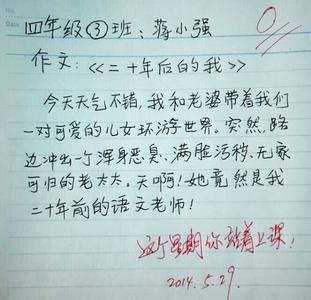 0
四年级③班:蒋小强
作文:<<二十年后的我>>
今天天气不错,我和老婆带着我们
一对可爱的儿女环游世界。突然,路
边冲出一个浑身恶臭、满脸污秽、无家
可归的老太太。天啊!她竟然是我
二十年前的语文老师!
这个星期你站着上课!
2014.5.29.